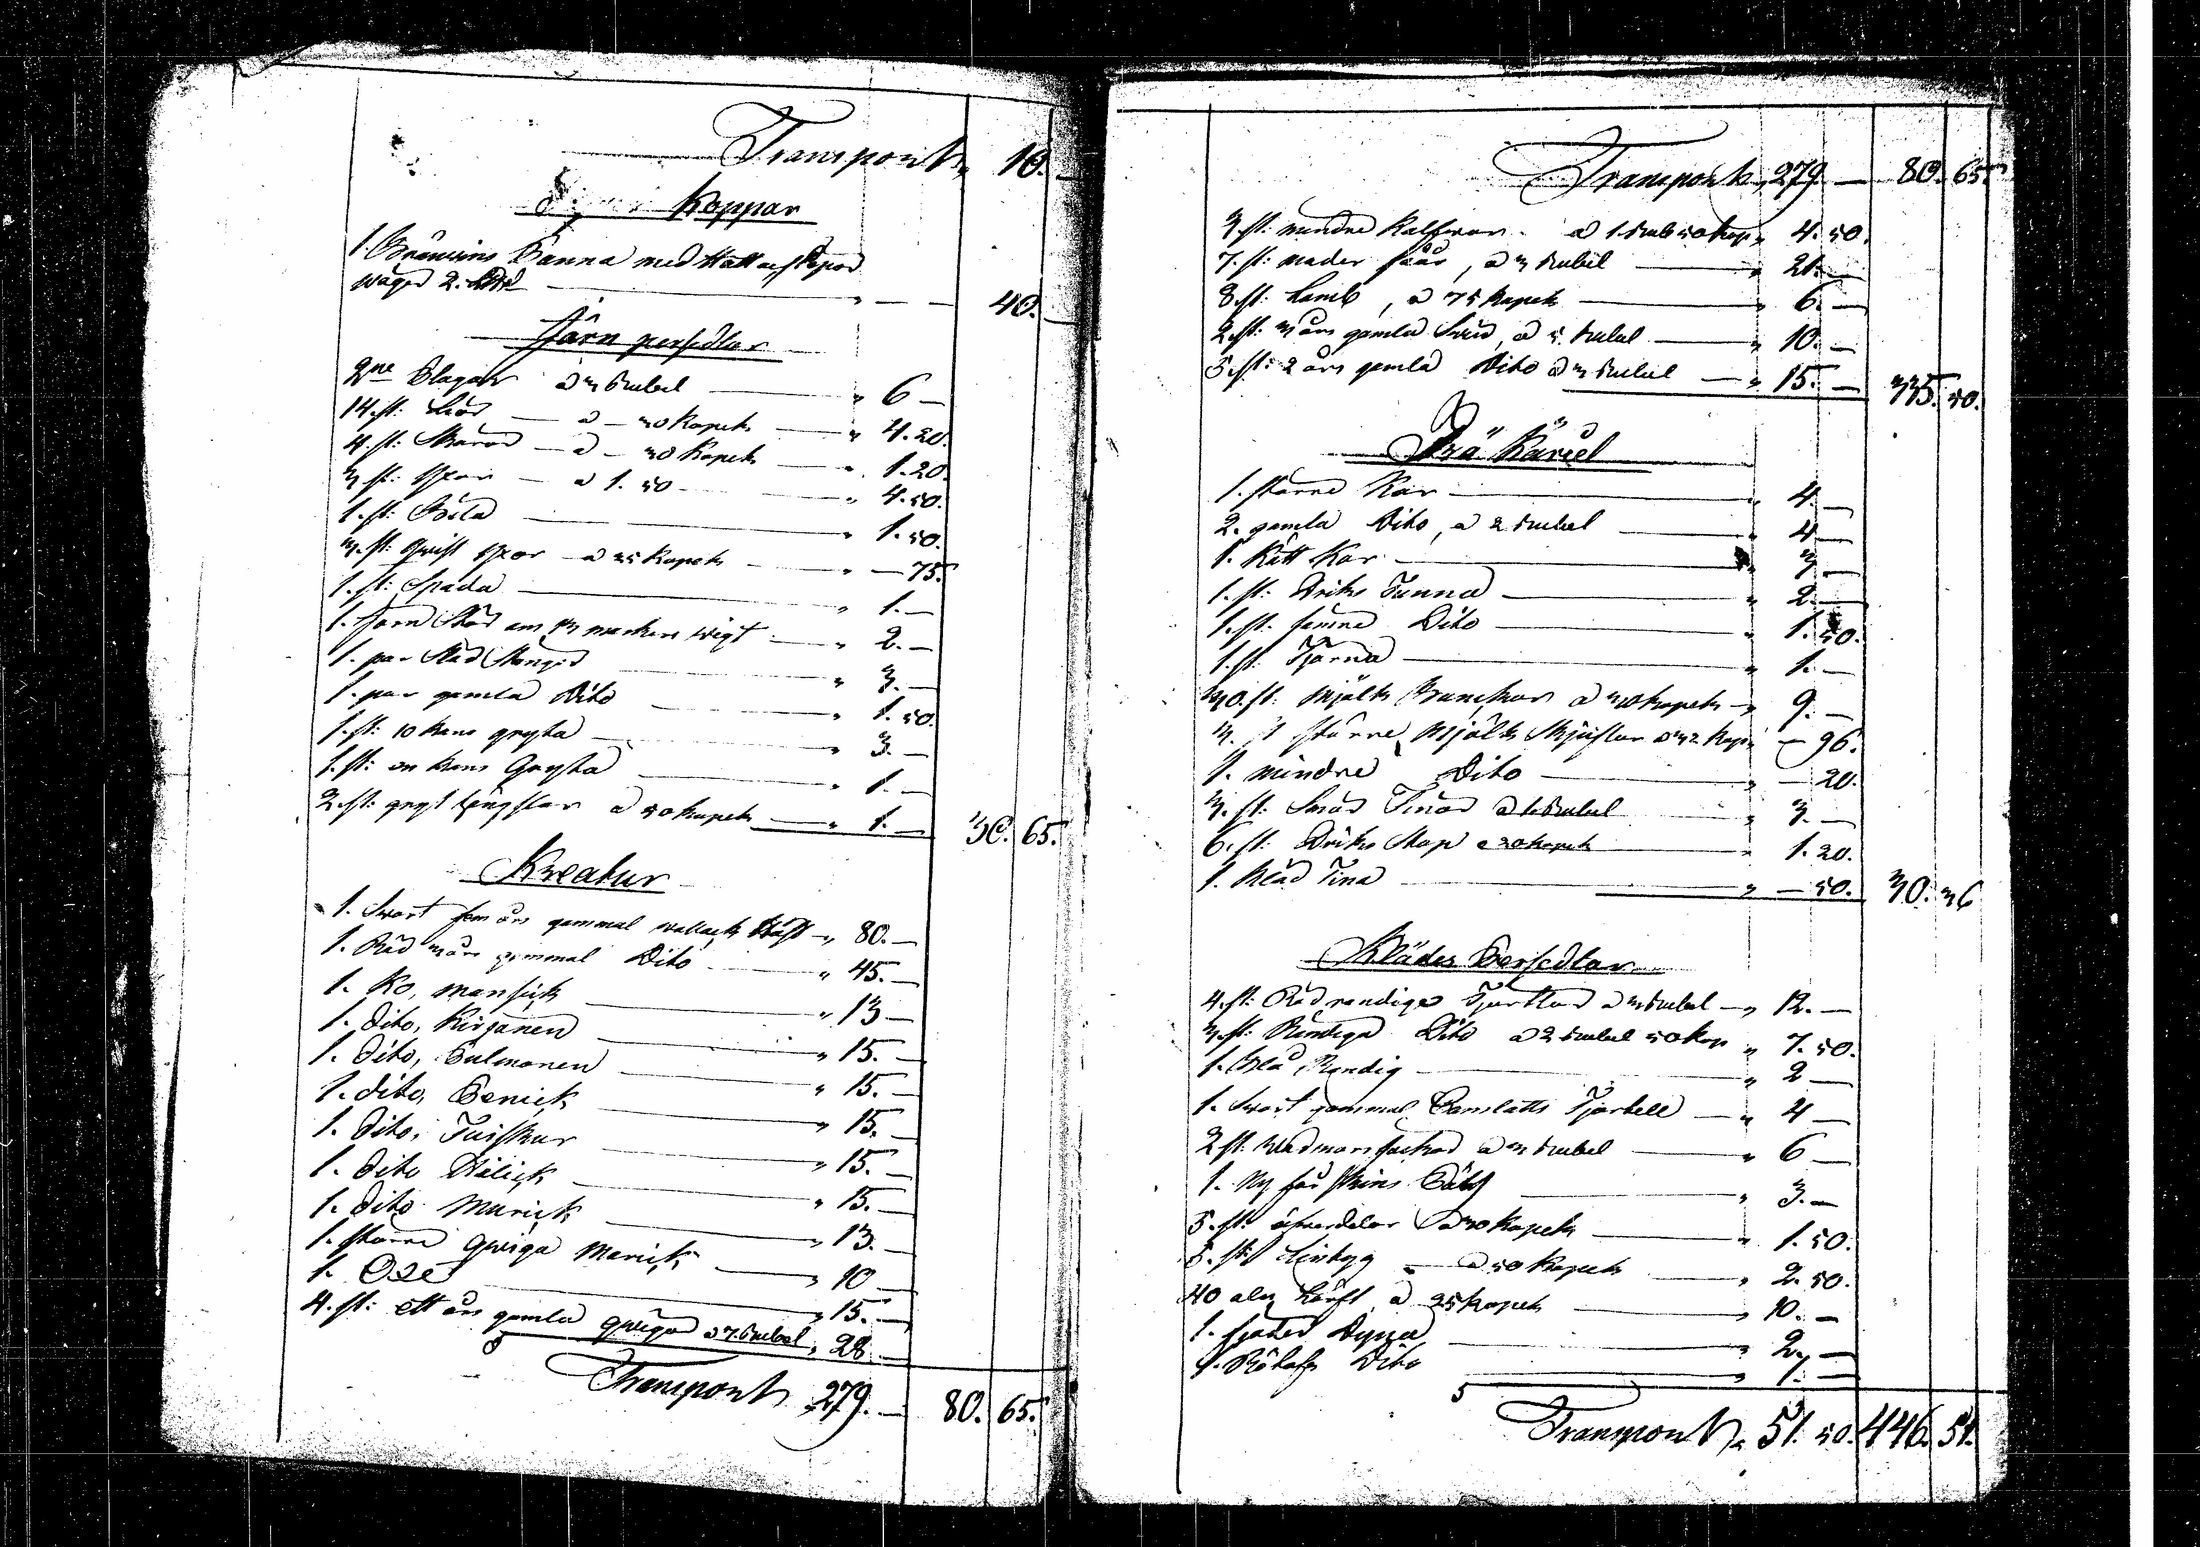 Transport „ 10. —
Koppar
1. Bränwins Panna med Hatt och Pipor
wäger 2. — „ — — 40. —
Järn persedlar
2ne Plogar a 3 Rubel — „ 6 —
14. st: Liar — a — 30 Kopek — „ 4. 20.
4. st: Skäror — a — 30 Kopek — „ 1. 20.
3. st: Yxor — a 1. 50 — „ 4. 50.
1. st: Bila — „ 1. 50.
3. st: Qvist Yxor — a 25 Kopek — „ — 75.
1. st: Spada — „ 1. —
1. Järn Stör om 13 markers wigt — „ 2. —
1. par Städ Stänger — „ 3. —
1. par gamla Dito — „ 1. 50.
1. st: 10 kans gryta — „ 3. —
1. st: en kans Gryta — „ 1. —
2. st: gryt a 50 Kopek — „ 1. — 30. 65.
Kreatur
1. Swart fem års gammal wallack Häst „ 80. —
1. Röd 3 års gammal Dito — „ 45. —
1. Ko, Mansick — „ 13 —
1. Dito, Kirjanen — „ 15. —
1. Dito, Pulmonen — „ 15. —
1. dito, Penick — „ 15. —
1. Dito, Tuiskur — „ 15. —
1. Dito Hälick — „ 15. —
1. Dito Murick — „ 13. —
1. större Qwiga Manick — „ 10 —
1. Oxe — „ 15. —
4. st: ett års gamla qwigor a 7. Rubel, 28 —
Transport „ 279. — 80. 65.
Transport „ 279. — 80. 65.
3. st: mindre Kalfwar. a 1. Rub 50 Kop „ 4. 50.
7. st: moder får, a 3 Rubel — „ 21. —
8. st: Lamb, a 75 Kopek — „ 6. —
2. st: 3 års gamla Swin, a 5. Rubel — „ 10. —
5. st: 2 års gamla Dito a 3 Rubel — „ 15. — 335. 50.
Trä Kärell
1. större Kar — „ 4. —
2. gamla Dito, a 2 Rubel — „ 4 —
1. Kött Kar — „ 3 —
1. st: Driks Tunna — „ 2. —
1. st. sämre Dito — „ 1. 50.
1. st. Tjärna — „ 1. —
30. st. Mjölk Bunckar a 30 Kopek „ 9. —
3. större Mjölk a 32 Kop: — 96.
1. mindre Dito — „ — 20.
3. st: Små Tinor a 1. Rubel „ 3. —
6. st. Driks Stop a 20 Kopek — „ 1. 20.
1. Kläd Tina — „ — 50. 30. 36
Klädes Persedlar
4. st: Röd randige Tjortlar a 3 Rubel — „ 12. —
3. st: Randiga Dito a 2 Rubel 50 Kop „ 7. 50.
1. Blå Randig — „ 2 —
1. Swart gammal Camlotts Tjortell — „ 4 —
2 st: Wadmars a 3 Rubel — „ 6 —
1. Ny får skins Päls — „ 3. —
5. st: öfwerdelar a 30 Kopek — „ 1. 50.
5. st: Lintyg — a 50 Kopek — „ 2. 50.
40 aln Lärft, a 25 Kopek — „ 10. —
1. Fjäder Dyna — „ 2. —
1. Dito — „ 1. —
Transport „ 51. 50. 446. 51.